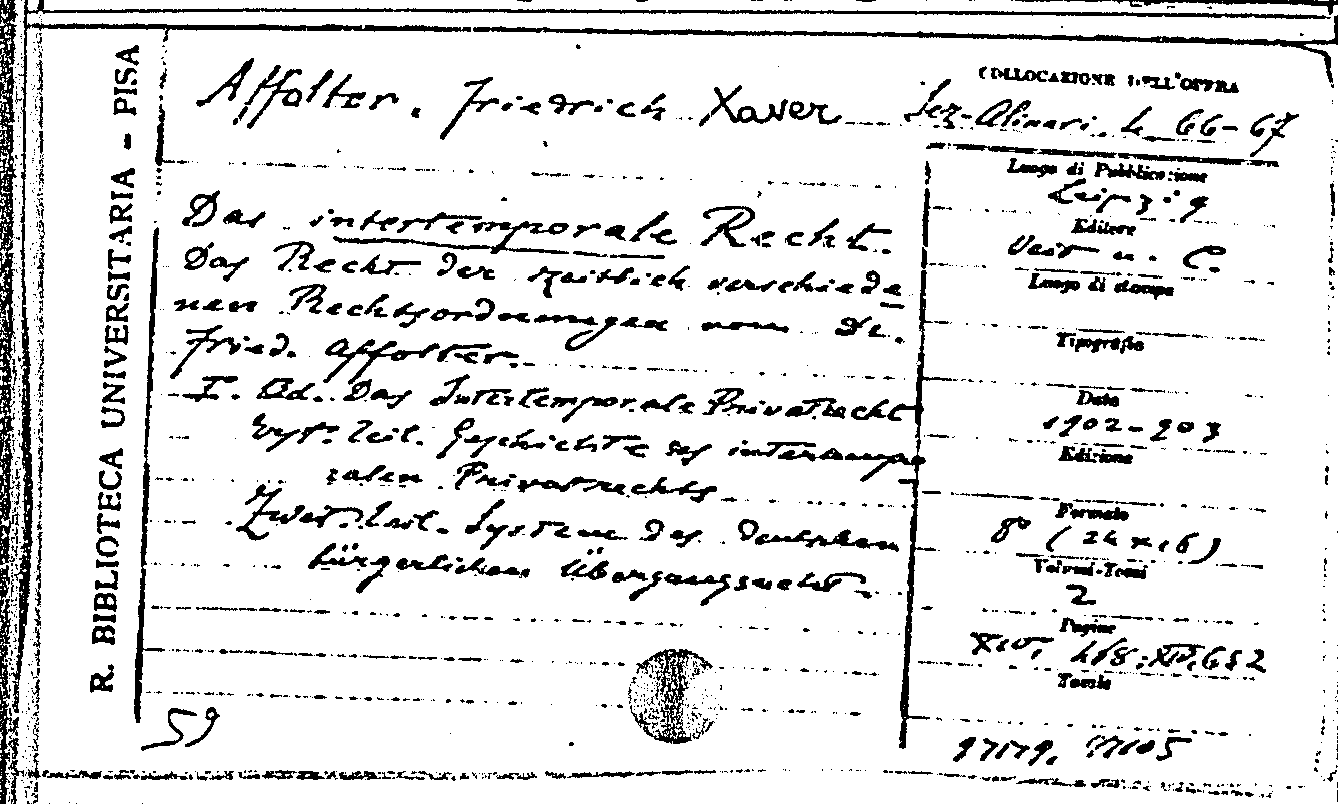 R. BIBLIOTECA UNIVERSITARIA - PISA
Affolter. Friedrich Xaver
COLLOCAZIONE DELL'OPERA
Sez. Alinari. 4 66-67
Das intertemporale Recht.
Das Recht der zeitlich verschiede
nen Rechtsordnungen von Dr.
Fried. Affolter.
I. Bd. Das Intertemporale Privatrecht
Erst. Teil. Geschichte des intertempo
ralen Privatrechts
Zweit. Teil. System des deutschen
bürgerlichen Übergangsrecht.
59
Luogo di Pubblicazione
Leipzig
Editore
Veit u. C.
Luogo di stampa
Tipografia
Data
1902-903
Edizione
Formato
8° (24 x 16)
Volumi-Tomi
2
Pagine
XIV, XIV, 652
Tavole